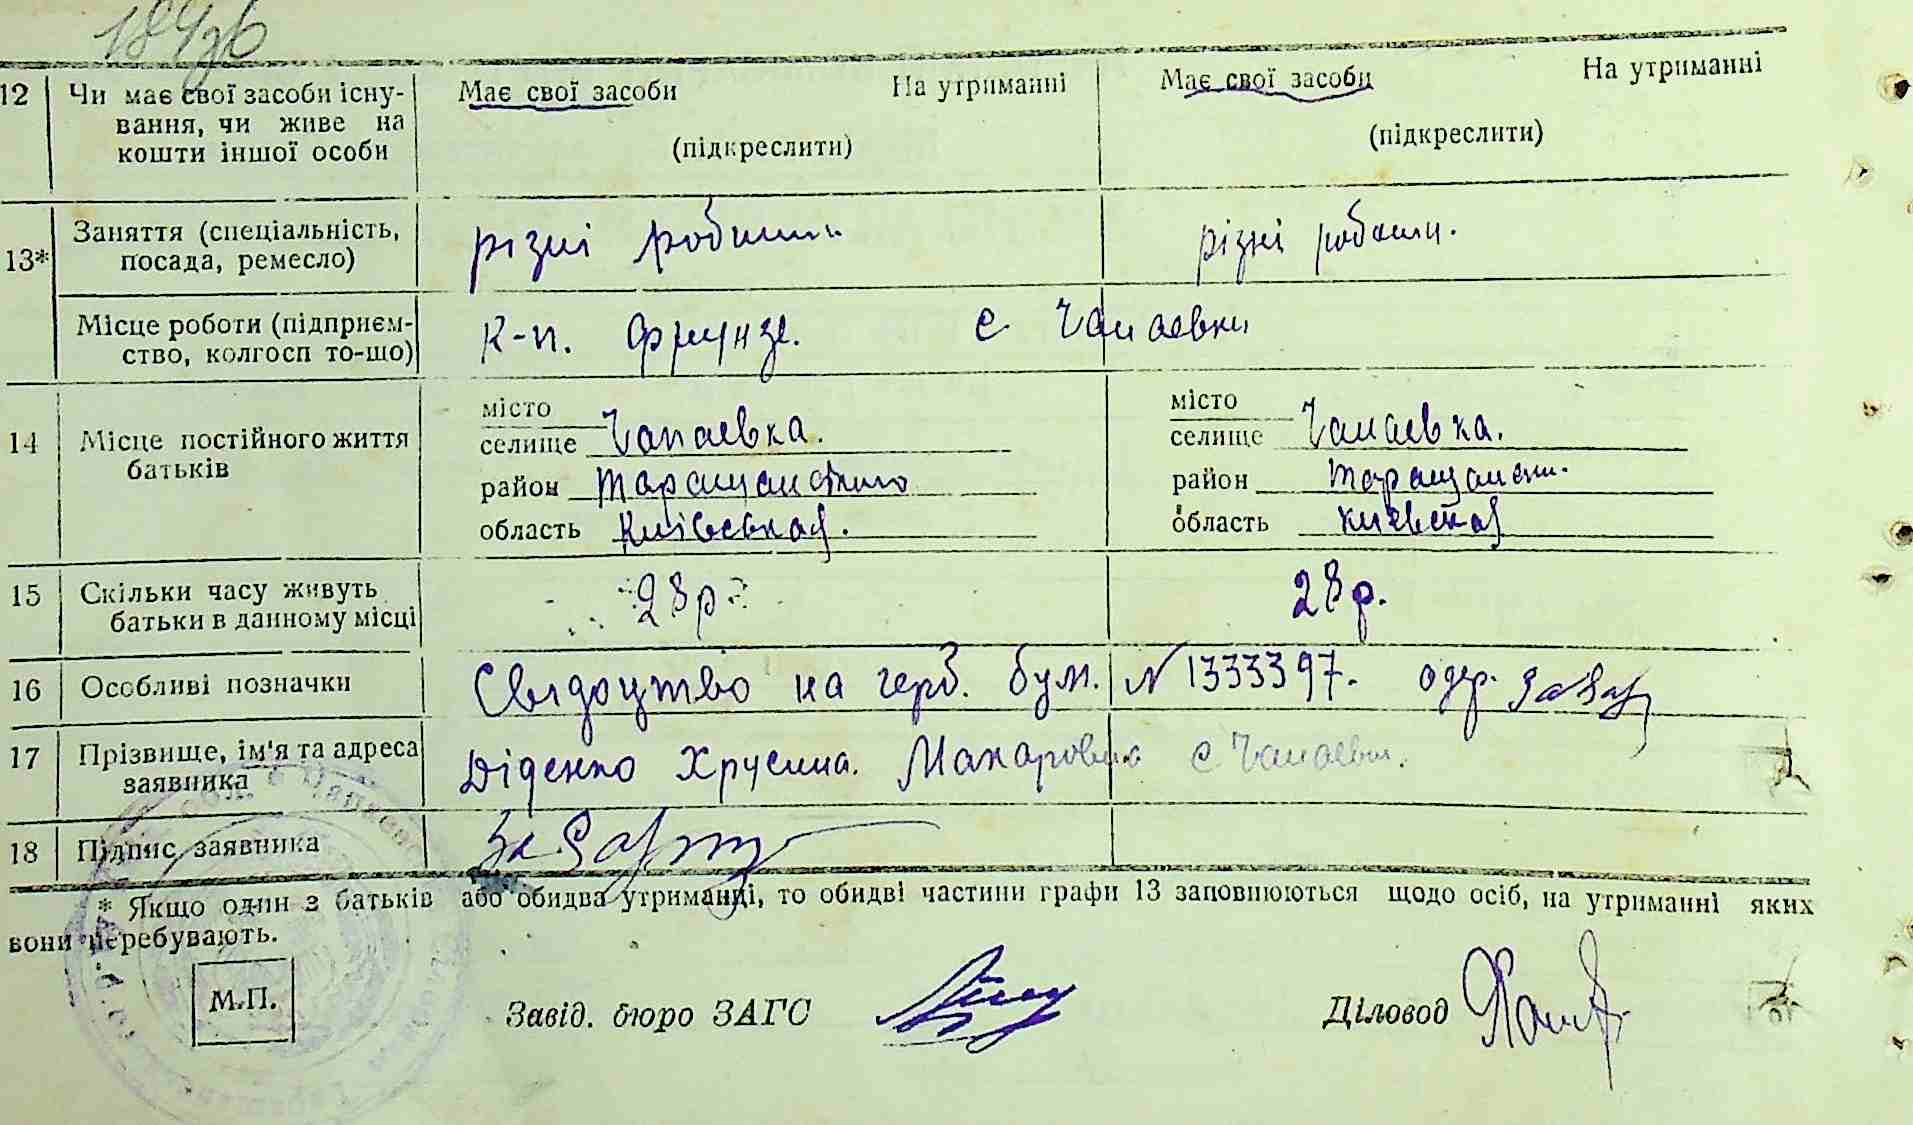 12 Чи має свої засоби існу- Має свої засоби На утриманні Має свої засоби На утриманні
вання, чи живе на
кошти іншої особи (підкреслити) (підкреслити)
13* Заняття (спеціальність, різні роботи різні роботи.
посада, ремесло)
Місце роботи (підприєм- К-п. Фрунзе. с Чапаевки
ство, колгосп то-що)
14 Місце постійного життя місто місто
батьків селище Чапаевка. селище Чапаевка.
район Таращанского район Таращанск.
область Київськая. область Киевская
15 Скільки часу живуть 28 р. 28 р.
батьки в данному місці
16 Особливі позначки Свідоцтво на герб. бум. № 1333397. одер.
17 Прізвище, ім'я та адреса Діденко Хрусина. Макаровна с Чапаевки.
заявника
18 Підпис заявника
* Якщо один з батьків або обидва утриманці, то обидві частини графи 13 заповнюються щодо осіб, на утриманні яких
вони перебувають.
М.П. Завід. бюро ЗАГС Діловод